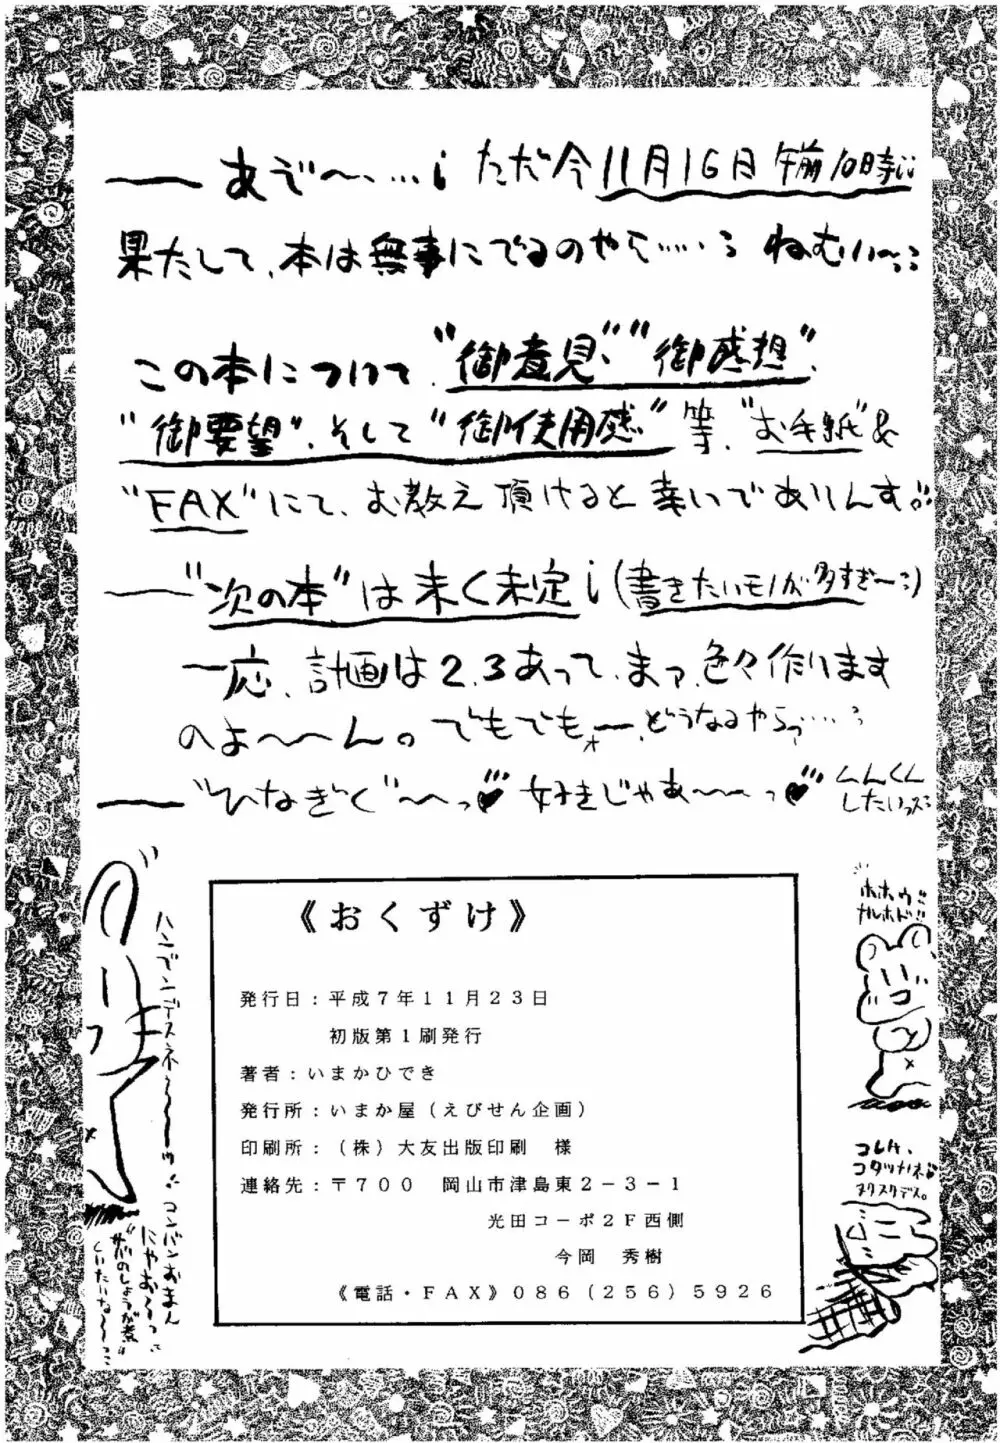 あぞ〜…¡ ただ今11月16日午前10時¡¡
果たして、本は無事にでるのやら……? ねむい〜?
この本について、"御意見"、"御感想"、
"御要望"、そして"御使用感"等、"お手紙"&
"FAX"にて、お教え頂けると幸いでありんす。
"次の本"は未く未定¡(書きたいモノが多すぎ〜?)
一応、計画は2、3あって、まァ、色々作ります
のよ〜〜ん。でもでもー、どうなるやらっ……?
"ひなぎく"〜っ♥ 好きじゃあ〜〜っ♥ くんくん
したいっス
《おくずけ》
発行日：平成7年11月23日
初版第1刷発行
著者：いまかひでき
発行所：いまか屋（えびせん企画）
印刷所：（株）大友出版印刷 様
連絡先：〒700 岡山市津島東2-3-1
光田コーポ2F西側
今岡 秀樹
《電話・FAX》086（256）5926
ハンブンデスネ〜〜ッ
コンバンおまん
にゃお〜っ
"サバのしょうが煮"
くいたいな〜っ
ホホウ
ナルホド!!
コレハ、
コタツナネ
ヌクヌクデス。